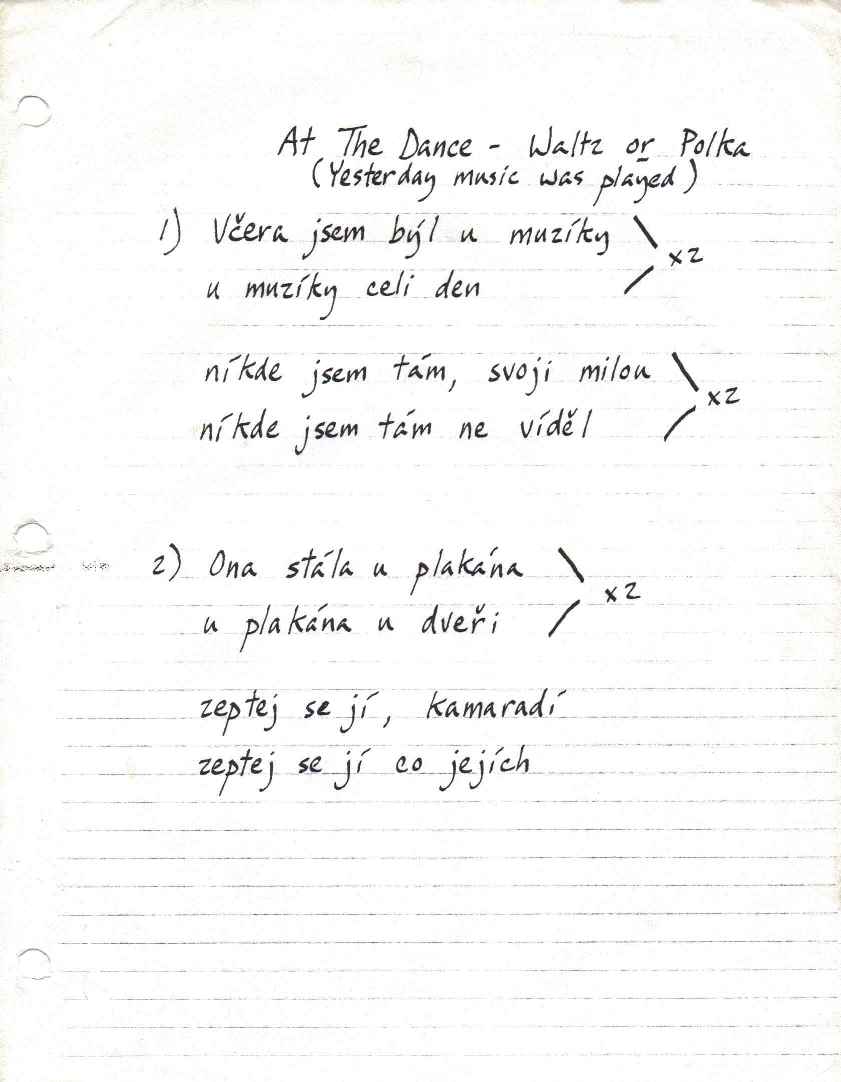 At The Dance - Waltz or Polka
(Yesterday music was played)
1) Včera jsem býl u muzíky
x2
u muzíky celi den
níkde jsem tám, svoji milou
x2
níkde jsem tám ne víděl
2) Ona stála u plakána
x2
u plakána u dveři
zeptej se jí, kamaradí
zeptej se jí co jejích